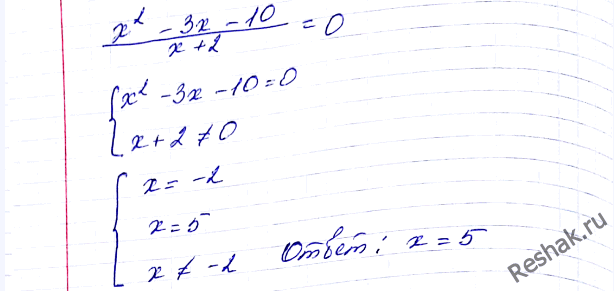 x² - 3x - 10
x + 2
= 0
x² - 3x - 10 = 0
x + 2 ≠ 0
x = -2
x = 5
x ≠ -2
Ответ: x = 5
Reshak.ru